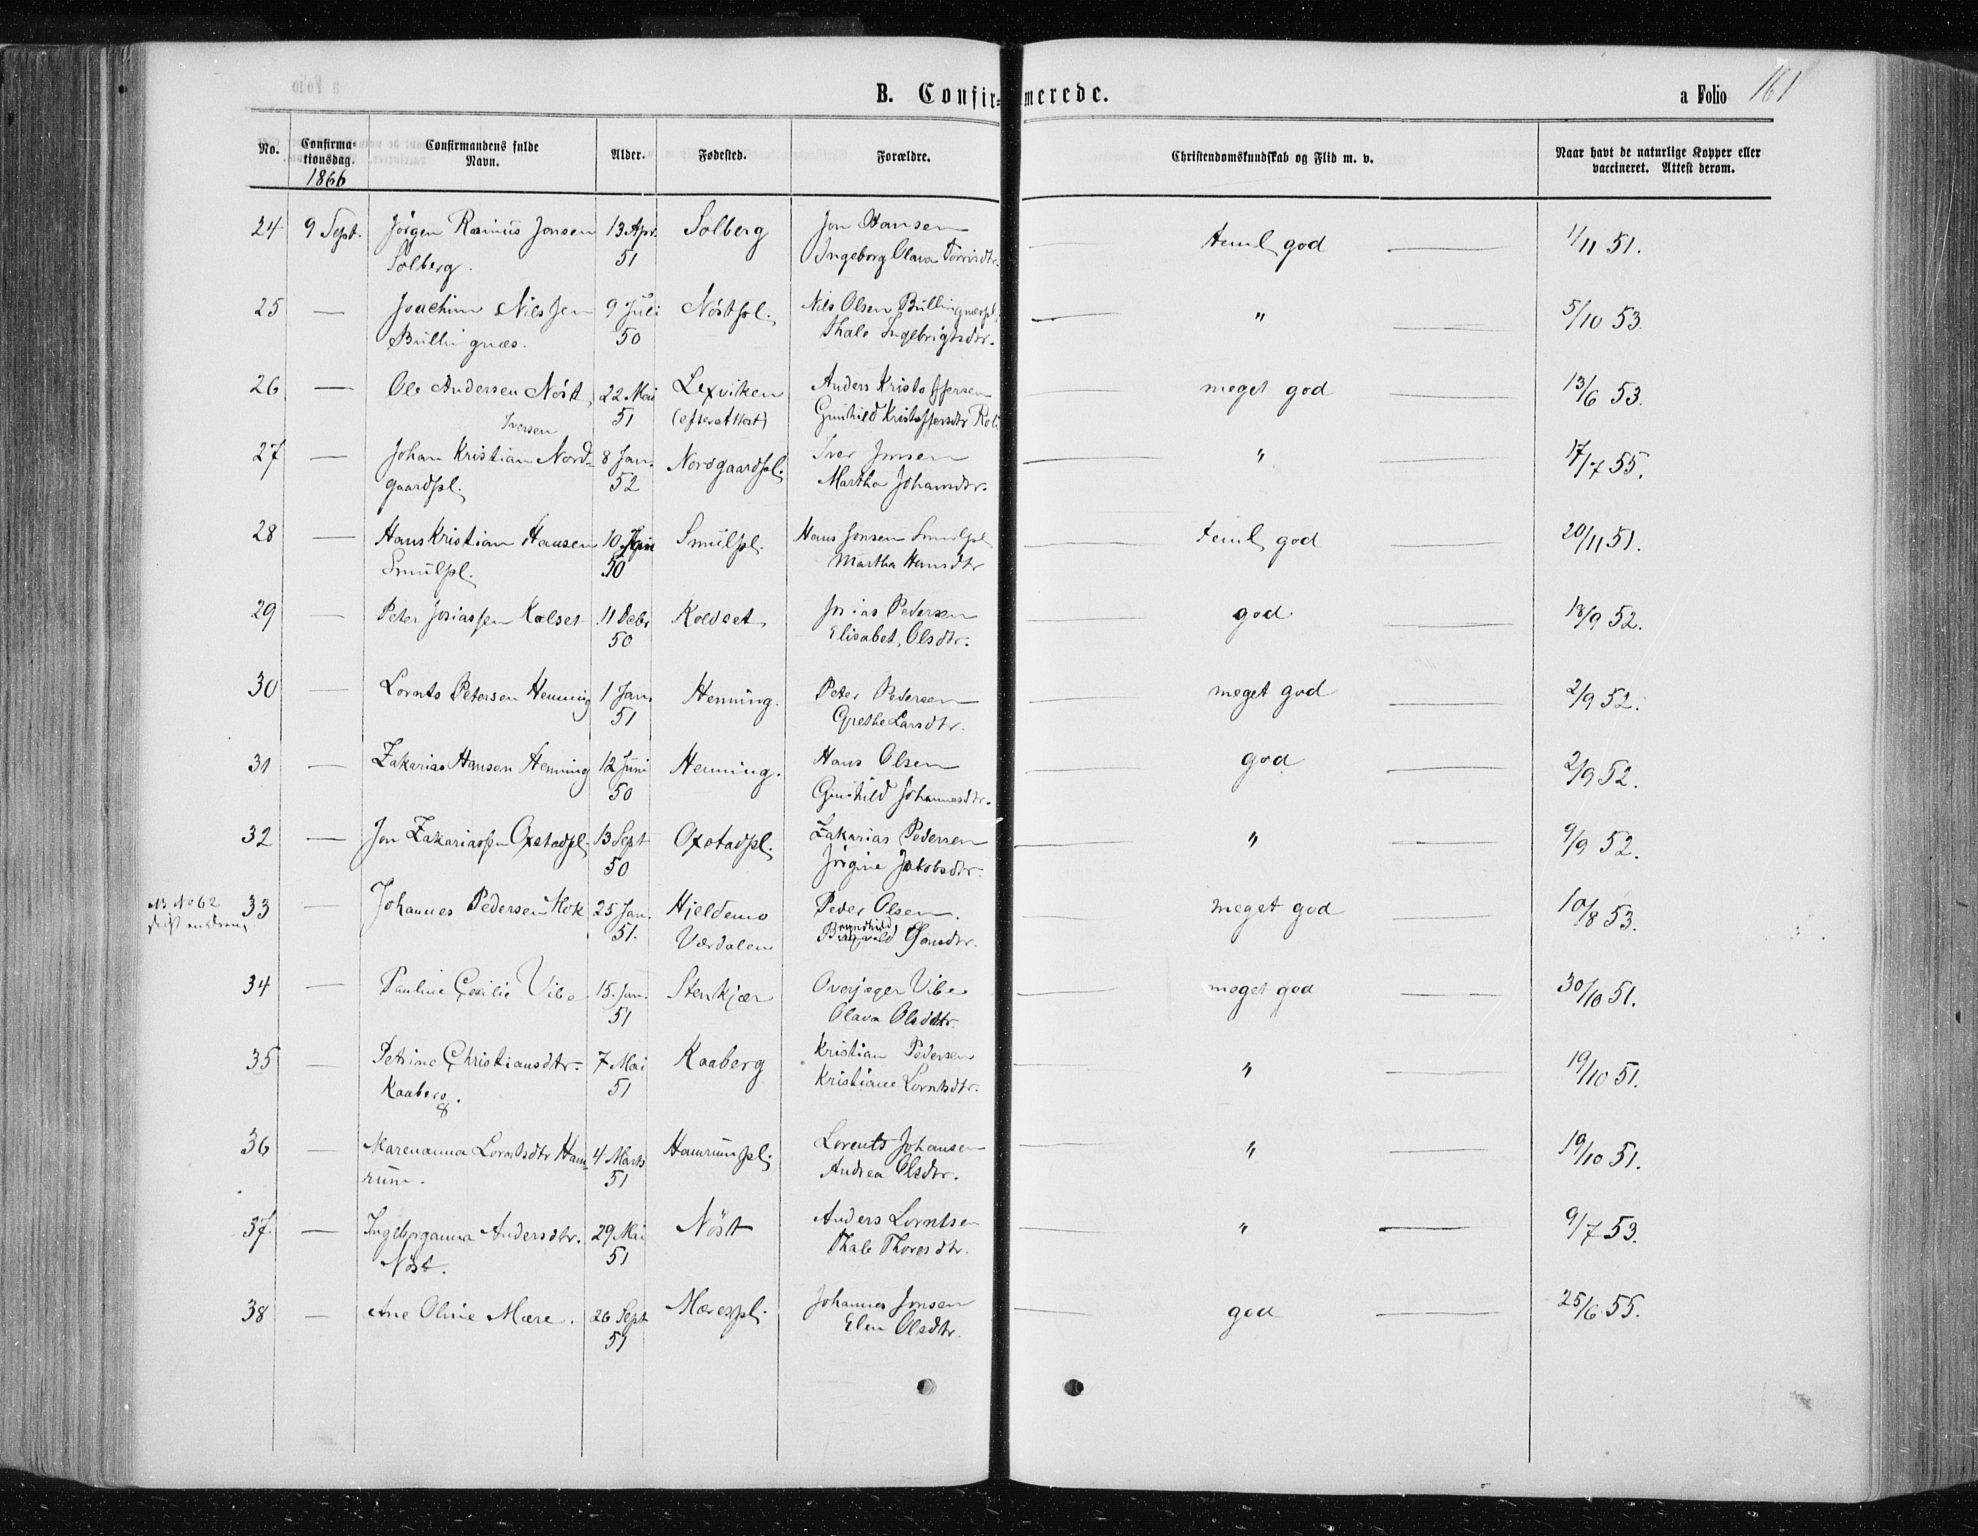 B. Confirmerede.
a Folio 161
No. Confirmationsdag. Confirmandens fulde Navn. Alder. Fødested. Forældre. Christendomskundskab og Flid m. v. Naar havt de naturlige Kopper eller vaccineret. Attest derom.
1866
24 9 Sept. Jørgen Rasmus Jonsen 13 Apr. Solberg Jon Hansen teml. god 1/11 51.
Solberg. 51 Ingeborg Olava
25 — Joachim Nilssen 9 Juli Nöstpl. Nils Olsen " 5/10 53.
Bullignæs. 50 Thale Ingebrigtsdtr.
26 — Ole Andersen Nöst 22 Mai Lexviken Anders Kristoffersen meget god 13/6 53.
51 Gunhild Kristoffersdtr
Iversen
27 — Johan Kristian Nord- 8 Jan. Nordgaardpl. Iver Jonsen " 17/7 55.
gaardpl. 52 Martha Johansdtr.
28 — Hans Kristian Hansen 10 Smulpl. Hans Jonsen Smulpl. teml. god 20/11 51.
Smulpl. 50 Martha Hansdtr
29 — Peter Josiassen Kolset 11 Debr Koldset Josias Pedersen god 18/9 52.
50 Elisabet Olsdtr.
30 — Lornts Petersen Henning 1 Jan. Henning. Peter Pedersen meget god 2/9 52.
51 Grethe Larsdtr.
31 — Zakarias Hansen Henning 12 Juni Henning. Hans Olsen god 2/9 52.
50 Gunhild Johannesdtr.
32 — Jon Zakariassen Oxstadpl. 13 Sept Oxstadpl. Zakarias Pedersen " 9/9 52.
50 Jörgine Jakobsdtr.
NB No 62
33 — Johannes Pedersen Hok 25 Jan. Hjeldemo Peder Olsen. meget god 10/8 53.
51. Værdalen
34 — Pauline Cecilie Vibe 15. Jan. Stenkjær Overjæger Vibe meget god 30/10 51.
51 Olava Olsdtr.
35 — Petrine Christiansdtr. 7 Mai Kaaberg Kristian Pedersen " 19/10 51.
Kaaberg. 51 Kristiane Lorntsdtr.
36 — Marenanna Lorntsdtr Ham- 4 Marts Hamrumpl. Lorents Johansen " 19/10 51.
rum. 51 Andrea Olsdtr.
37. — Ingeborganna Andersdtr. 29 Mai Nöst Anders Lorntsen " 9/7 53.
Nöst. 51 Thale Thoresdtr.
38 — Ane Oline Mære. 26 Sept Mærespl. Johannes Jonsen god 25/6 55.
51 Elen Olsdtr.